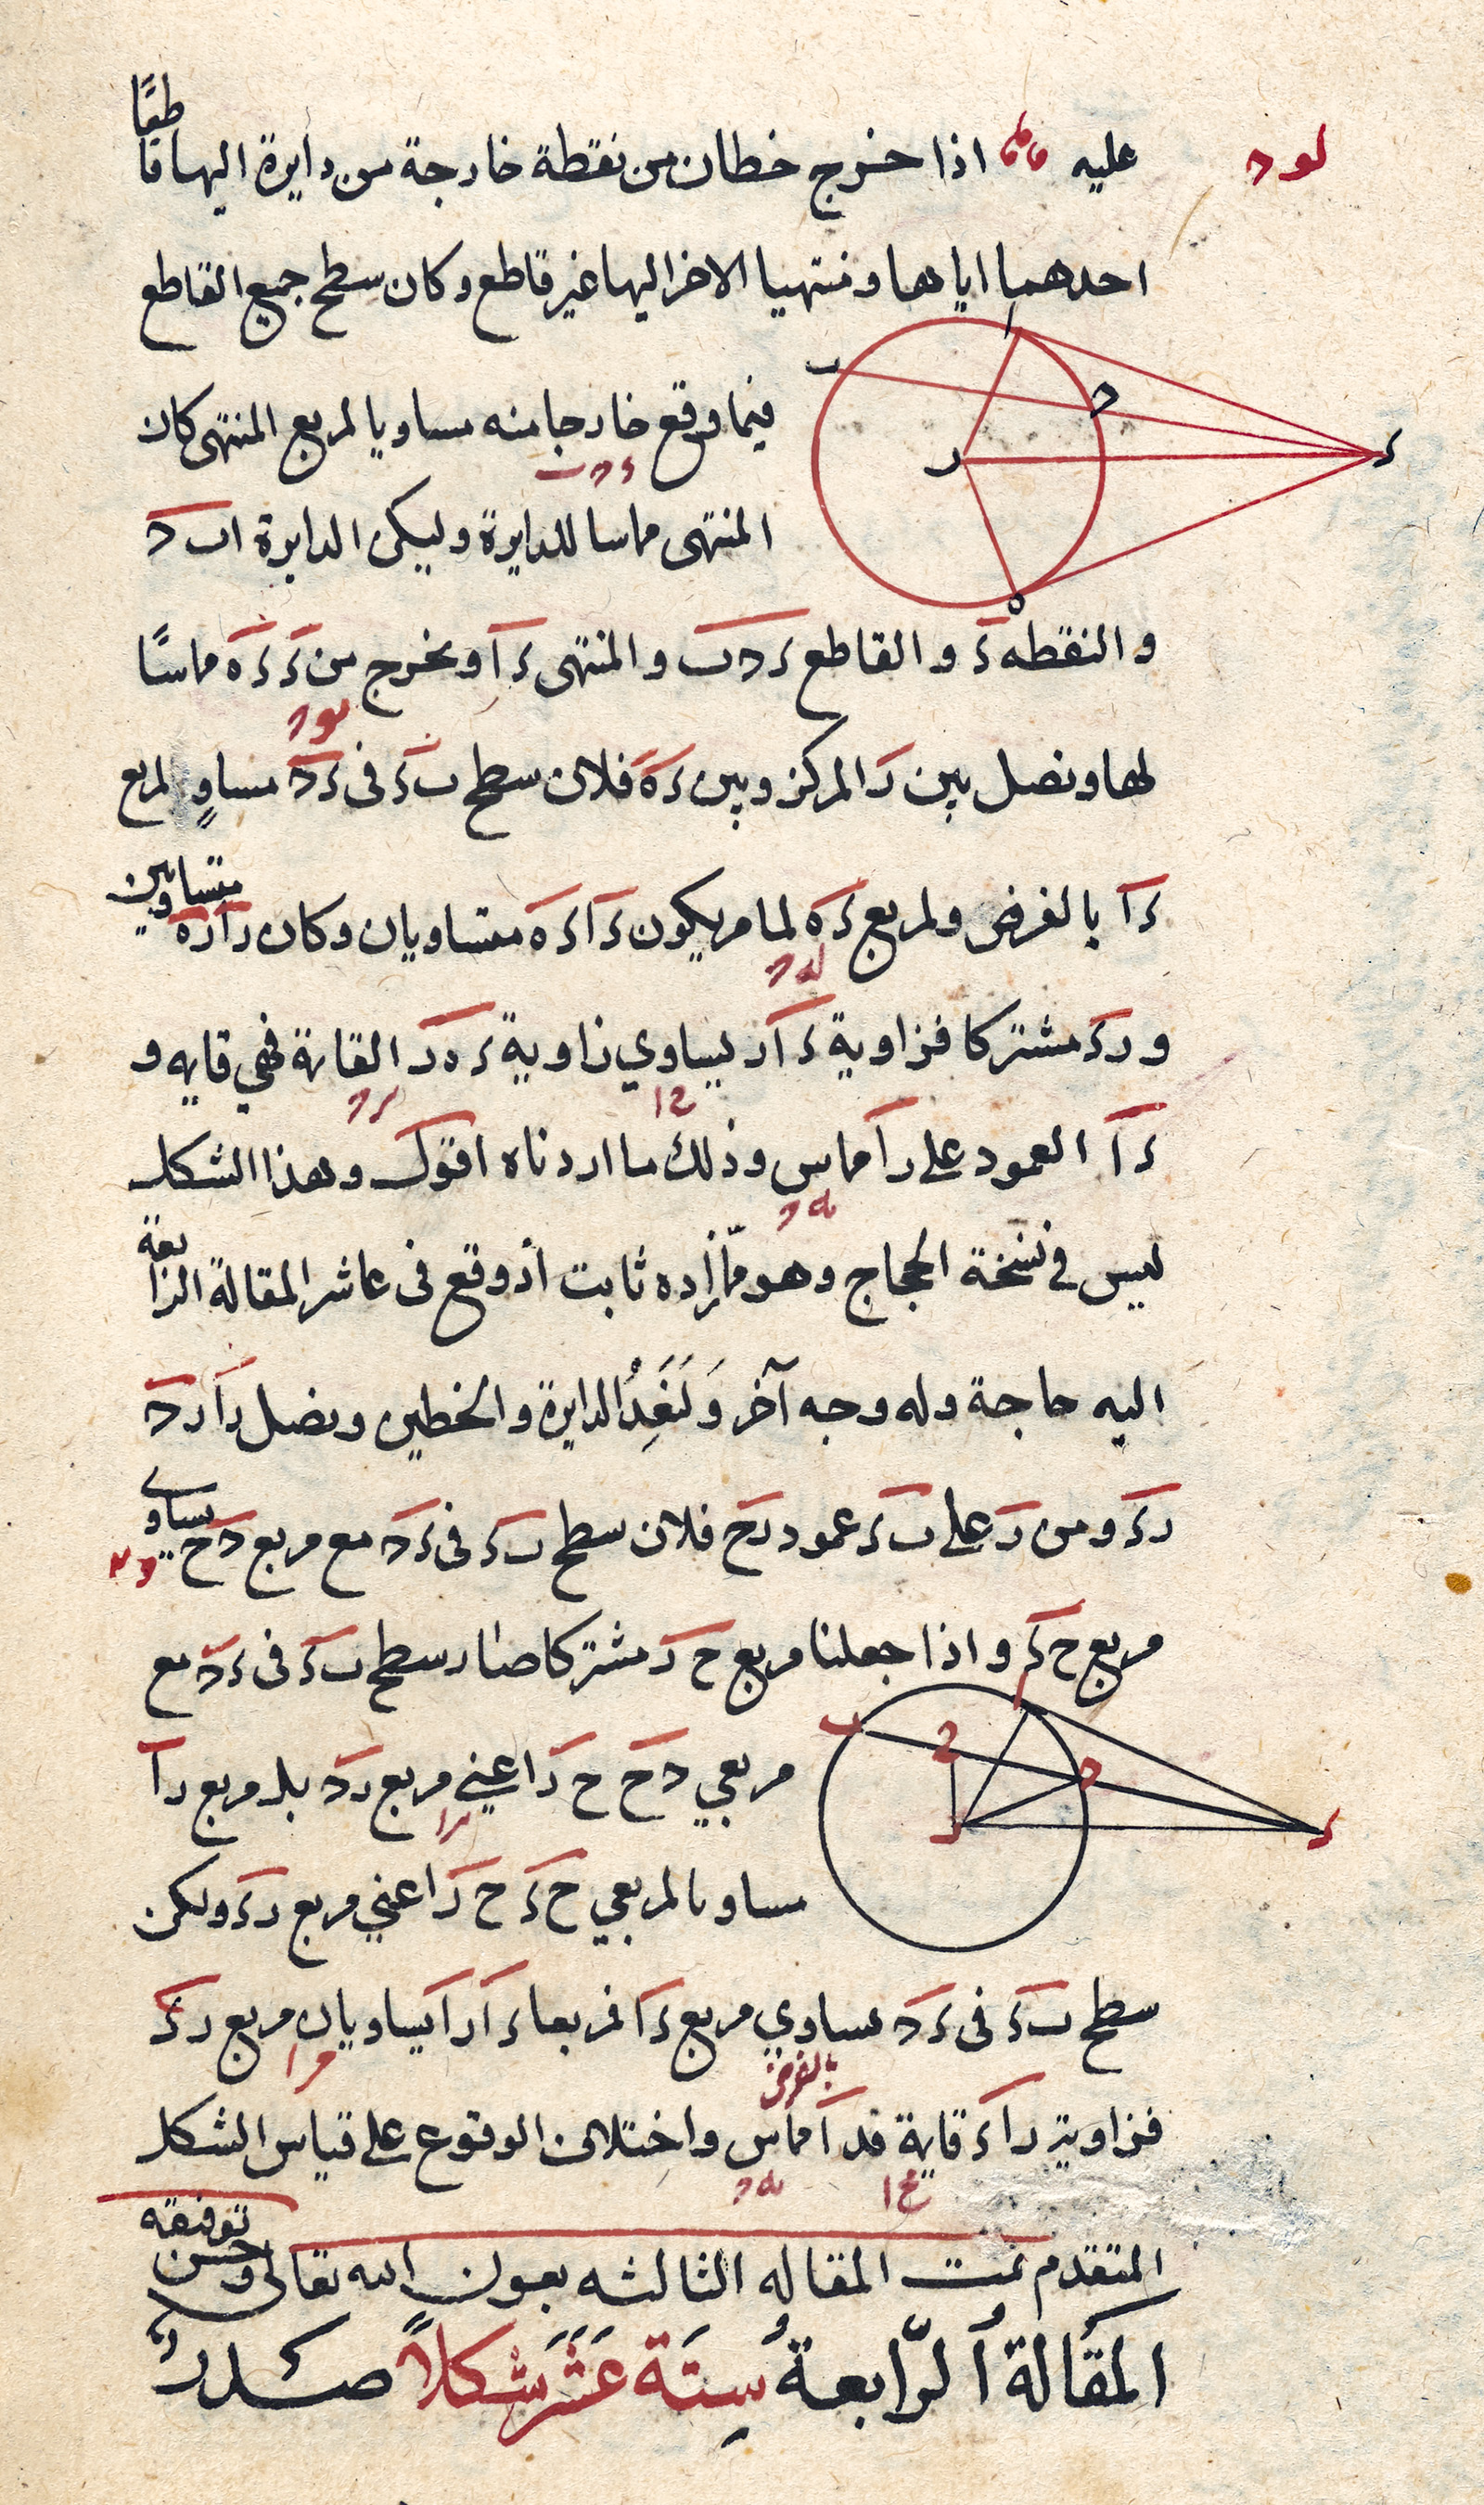 لو د عليه اذا خرج خطان من نقطة خارجة من دايرة اليها قاطعًا
احدهما اياها ومنتهيا الاخر اليها غير قاطع وكان سطح جميع القاطع
فيما وقع خارجا منه مساويا لمربع المنتهى كان
المنتهى مماسا للدايرة وليكن الدايرة اب ح
والنقطه ء والقاطع ء ح ب والمنتهى ء ا ويخرج من ء ء ه مماسًا
لها ونصل بين ر المركز وبين ء ه فلان سطح ب ء فى ء ح مساوٍ لمربع
ء ا بالفرض ولمربع ء ه لما مر يكون ء ا ء ه متساويان وكان ر ا ر ه متساويين
و ر ء مشتركا فزاوية ء ا ر يساوي زاوية ء ه ر القايمة فهي قايمه و
ء ا العمود على ر ا مماس وذلك ما اردناه اقول وهذا الشكل
ليس في نسخة الحجاج وهو ممّا زاده ثابت اذ وقع فى عاشر المقالة الرابعة
اليه حاجة وله وجه آخر وَلنَعِدُ الدايرة والخطين ونصل ر ا ر ح
ر ء ومن ر على ب ء عمود ر ح فلان سطح ب ء فى ء ح مع مربع ح ح يساوي
مربع ح ء واذا جعلنا مربع ح ر مشتركا صار سطح ب ء فى ء ح مع
مربعي ح ح ح ر اعني مربع ر ح بل مربع ر ا
مساويا لمربعي ح ء ح ر اعني مربع ر ء ولكن
سطح ب ء فى ء ح مساوي مربع ء ا فمربعا ء ا ر ا يساويان مربع ر ء
بالفرض
فزاوية ر ا ء قايمة فد ا مماس واختلاف الوقوع على قياس الشكل
المتقدم تمت المقاله الثالثه بعون الله تعالى وحسن توفيقه
المقَالة الرّابعةُ سِتَة عَشَرَ شكلاً صدر